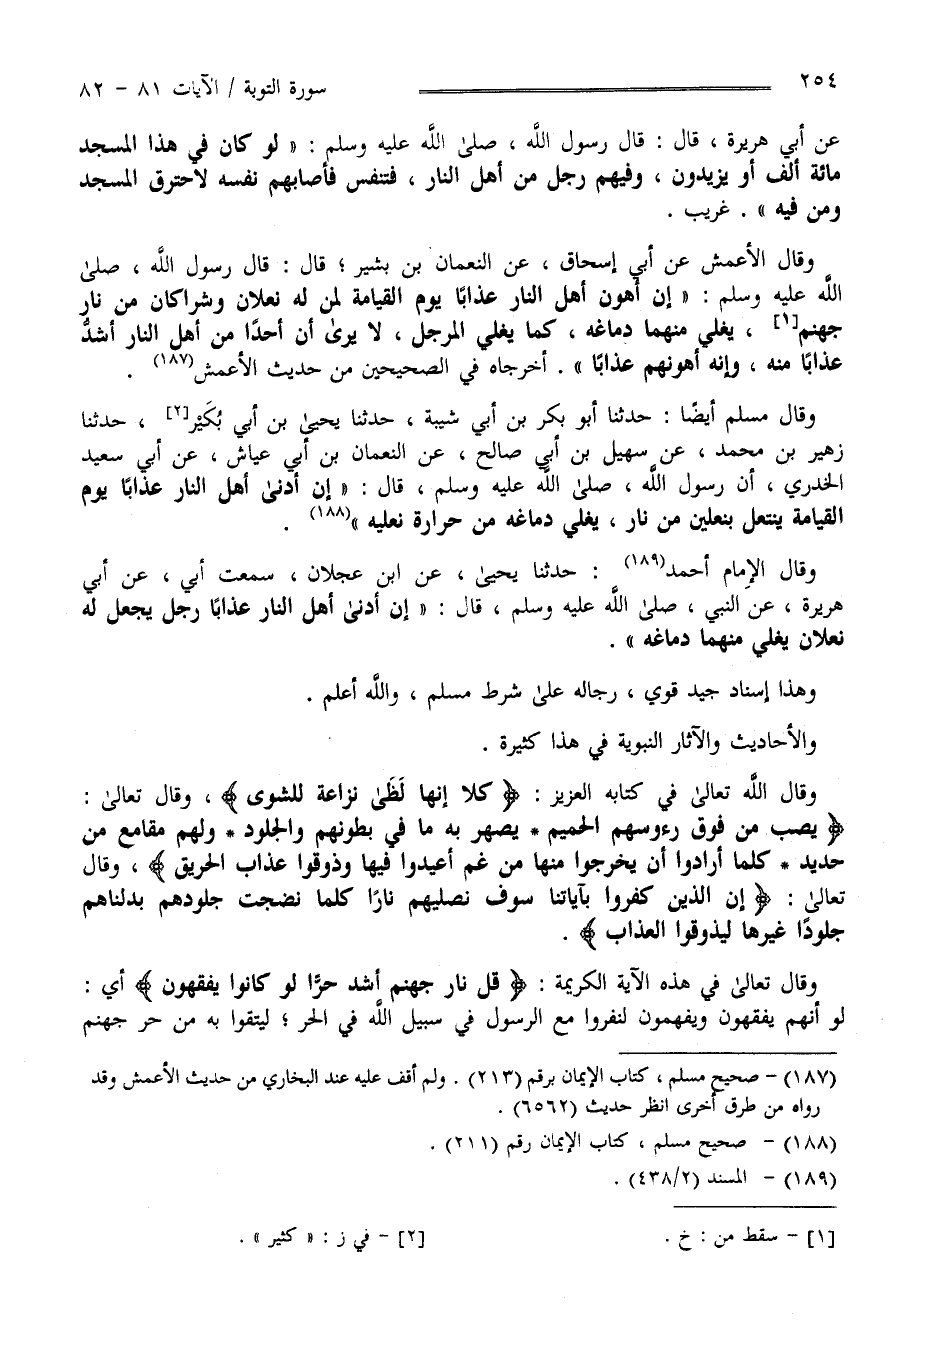 ٢٥٤ سورة التوبة / الآيات ٨١ - ٨٢
عن أبي هريرة ، قال : قال رسول اللَّه ، صلىٰ اللَّه عليه وسلم : « لو كان في هذا المسجد
مائة ألف أو يزيدون ، وفيهم رجل من أهل النار ، فتنفس فأصابهم نفسه لاحترق المسجد
ومن فيه » . غريب .
وقال الأعمش عن أبي إسحاق ، عن النعمان بن بشير ؛ قال : قال رسول اللَّه ، صلىٰ
اللَّه عليه وسلم : « إن أهون أهل النار عذابًا يوم القيامة لمن له نعلان وشراكان من نار
جهنم[١] ، يغلي منهما دماغه ، كما يغلي المرجل ، لا يرىٰ أن أحدًا من أهل النار أشدُّ
عذابًا منه ، وإنه أهونهم عذابًا » . أخرجاه في الصحيحين من حديث الأعمش(١٨٧) .
وقال مسلم أيضًا : حدثنا أبو بكر بن أبي شيبة ، حدثنا يحيىٰ بن أبي بُكَيْر[٢] ، حدثنا
زهير بن محمد ، عن سهيل بن أبي صالح ، عن النعمان بن أبي عياش ، عن أبي سعيد
الخدري ، أن رسول اللَّه ، صلىٰ اللَّه عليه وسلم ، قال : « إن أدنىٰ أهل النار عذابًا يوم
القيامة ينتعل بنعلين من نار ، يغلي دماغه من حرارة نعليه »(١٨٨) .
وقال الإمام أحمد(١٨٩) : حدثنا يحيىٰ ، عن ابن عجلان ، سمعت أبي ، عن أبي
هريرة ، عن النبي ، صلىٰ اللَّه عليه وسلم ، قال : « إن أدنىٰ أهل النار عذابًا رجل يجعل له
نعلان يغلي منهما دماغه » .
وهذا إسناد جيد قوي ، رجاله علىٰ شرط مسلم ، واللَّه أعلم .
والأحاديث والآثار النبوية في هذا كثيرة .
وقال اللَّه تعالىٰ في كتابه العزيز : ﴿ كلا إنها لَظَىٰ نزاعة للشوى ﴾ ، وقال تعالىٰ :
﴿ يصب من فوق رءوسهم الحميم * يصهر به ما في بطونهم والجلود * ولهم مقامع من
حديد * كلما أرادوا أن يخرجوا منها من غم أعيدوا فيها وذوقوا عذاب الحريق ﴾ ، وقال
تعالىٰ : ﴿ إن الذين كفروا بآياتنا سوف نصليهم نارًا كلما نضجت جلودهم بدلناهم
جلودًا غيرها ليذوقوا العذاب ﴾ .
وقال تعالىٰ في هذه الآية الكريمة : ﴿ قل نار جهنم أشد حرًّا لو كانوا يفقهون ﴾ أي :
لو أنهم يفقهون ويفهمون لنفروا مع الرسول في سبيل اللَّه في الحر ؛ ليتقوا به من حر جهنم
(١٨٧) - صحيح مسلم ، كتاب الإيمان برقم (٢١٣) . ولم أقف عليه عند البخاري من حديث الأعمش وقد
رواه من طرق أخرى انظر حديث (٦٥٦٢) .
(١٨٨) - صحيح مسلم ، كتاب الإيمان رقم (٢١١) .
(١٨٩) - المسند (٤٣٨/٢) .
[١] - سقط من : خ . [٢] - في ز : « كثير » .